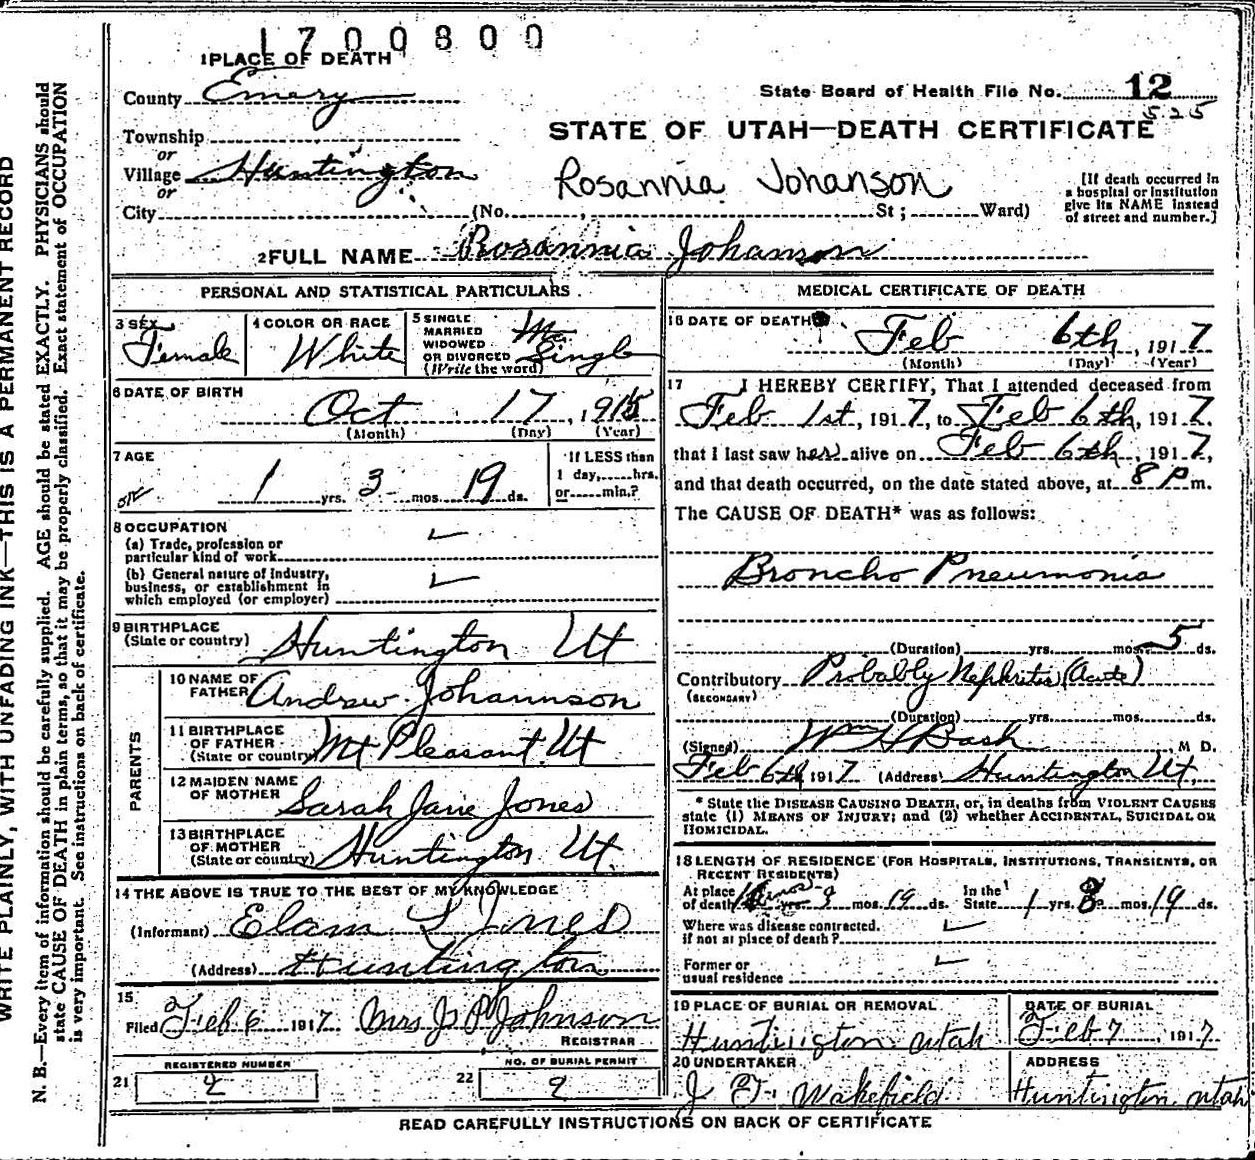 1700800
1 PLACE OF DEATH
County Emery
State Board of Health File No. 12
525
Township
or
STATE OF UTAH—DEATH CERTIFICATE
Village Huntington
or
Rosannia Johanson
[If death occurred in
a hospital or institution
give its NAME instead
of street and number.]
City (No. , St ; Ward)
2 FULL NAME Rosannia Johanson
PERSONAL AND STATISTICAL PARTICULARS
3 SEX
Female
4 COLOR OR RACE
White
5 SINGLE
MARRIED
WIDOWED
OR DIVORCED
(Write the word)
Single
6 DATE OF BIRTH
Oct 17, 1915
(Month) (Day) (Year)
7 AGE
1 yrs. 3 mos. 19 ds.
If LESS than
1 day, hrs.
or min.?
8 OCCUPATION
(a) Trade, profession or
particular kind of work
(b) General nature of industry,
business, or establishment in
which employed (or employer)
9 BIRTHPLACE
(State or country) Huntington Ut
PARENTS
10 NAME OF
FATHER Andrew Johannson
11 BIRTHPLACE
OF FATHER
(State or country) Mt Pleasant Ut
12 MAIDEN NAME
OF MOTHER Sarah Jane Jones
13 BIRTHPLACE
OF MOTHER
(State or country) Huntington Ut.
14 THE ABOVE IS TRUE TO THE BEST OF MY KNOWLEDGE
(Informant) Elam L Jones
(Address) Huntington
15
Filed Feb 6 1917 Mrs J P Johnson
REGISTRAR
REGISTERED NUMBER
21 2
NO. OF BURIAL PERMIT
22 2
MEDICAL CERTIFICATE OF DEATH
16 DATE OF DEATH
Feb 6th, 1917
(Month) (Day) (Year)
17 I HEREBY CERTIFY, That I attended deceased from
Feb 1st, 1917, to Feb 6th, 1917.
that I last saw her alive on Feb 6th, 1917,
and that death occurred, on the date stated above, at 8 P m.
The CAUSE OF DEATH* was as follows:
Broncho Pneumonia
(Duration) yrs. mos. 5 ds.
Contributory Probably Nephritis (Acute)
(SECONDARY)
(Duration) yrs. mos. ds.
(Signed) Wm H Bash, M D.
Feb 6th 1917 (Address) Huntington Ut.
* State the DISEASE CAUSING DEATH, or, in deaths from VIOLENT CAUSES
state (1) MEANS OF INJURY; and (2) whether ACCIDENTAL, SUICIDAL OR
HOMICIDAL.
18 LENGTH OF RESIDENCE (FOR HOSPITALS, INSTITUTIONS, TRANSIENTS, OR
RECENT RESIDENTS)
At place
of death 1 yrs. 3 mos. 19 ds.
In the
State 1 yrs. 3 mos. 19 ds.
Where was disease contracted.
if not at place of death?
Former or
usual residence
19 PLACE OF BURIAL OR REMOVAL
Huntington utah
DATE OF BURIAL
Feb 7, 1917
20 UNDERTAKER
J F Wakefield
ADDRESS
Huntington utah
READ CAREFULLY INSTRUCTIONS ON BACK OF CERTIFICATE
WRITE PLAINLY, WITH UNFADING INK—THIS IS A PERMANENT RECORD
N. B.—Every item of information should be carefully supplied. AGE should be stated EXACTLY. PHYSICIANS should
state CAUSE OF DEATH in plain terms, so that it may be properly classified. Exact statement of OCCUPATION
is very important. See instructions on back of certificate.